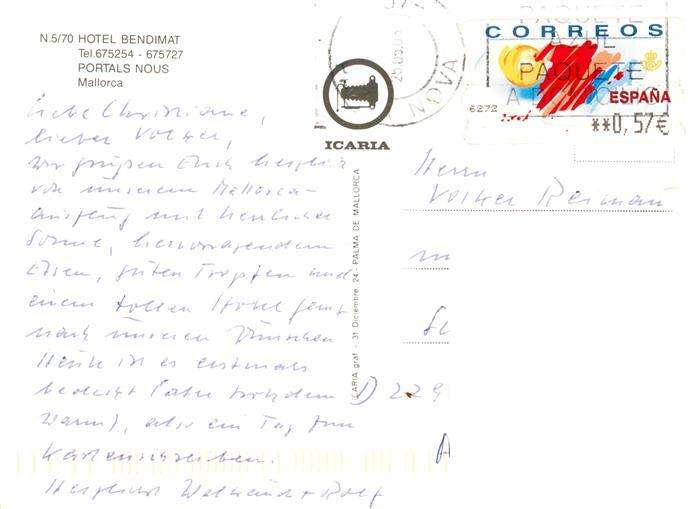 N.5/70 HOTEL BENDIMAT
Tel.675254 - 675727
PORTALS NOUS
Mallorca
Liebe Christiane,
lieber Volker,
wir grüßen Euch herzlich
von unserem Mallorca-
ausflug mit herrlicher
Sonne, hervorragendem
Essen, guten Tropfen und
einem tollen Hotel ganz
nach unseren Wünschen
Heute ist es erstmals
bedeckt (aber trotzdem
warm), also ein Tag zum
Kartenschreiben.
Herzlichst + Rolf
ICARIA
ICARIA graf. - 31 Diciembre, 24 - PALMA DE MALLORCA
NOVA
CORREOS
PAQUETE
AZUL
PAQUETE
6272
ESPAÑA
**0,57€
Herrn
Volker Reimau
D 229